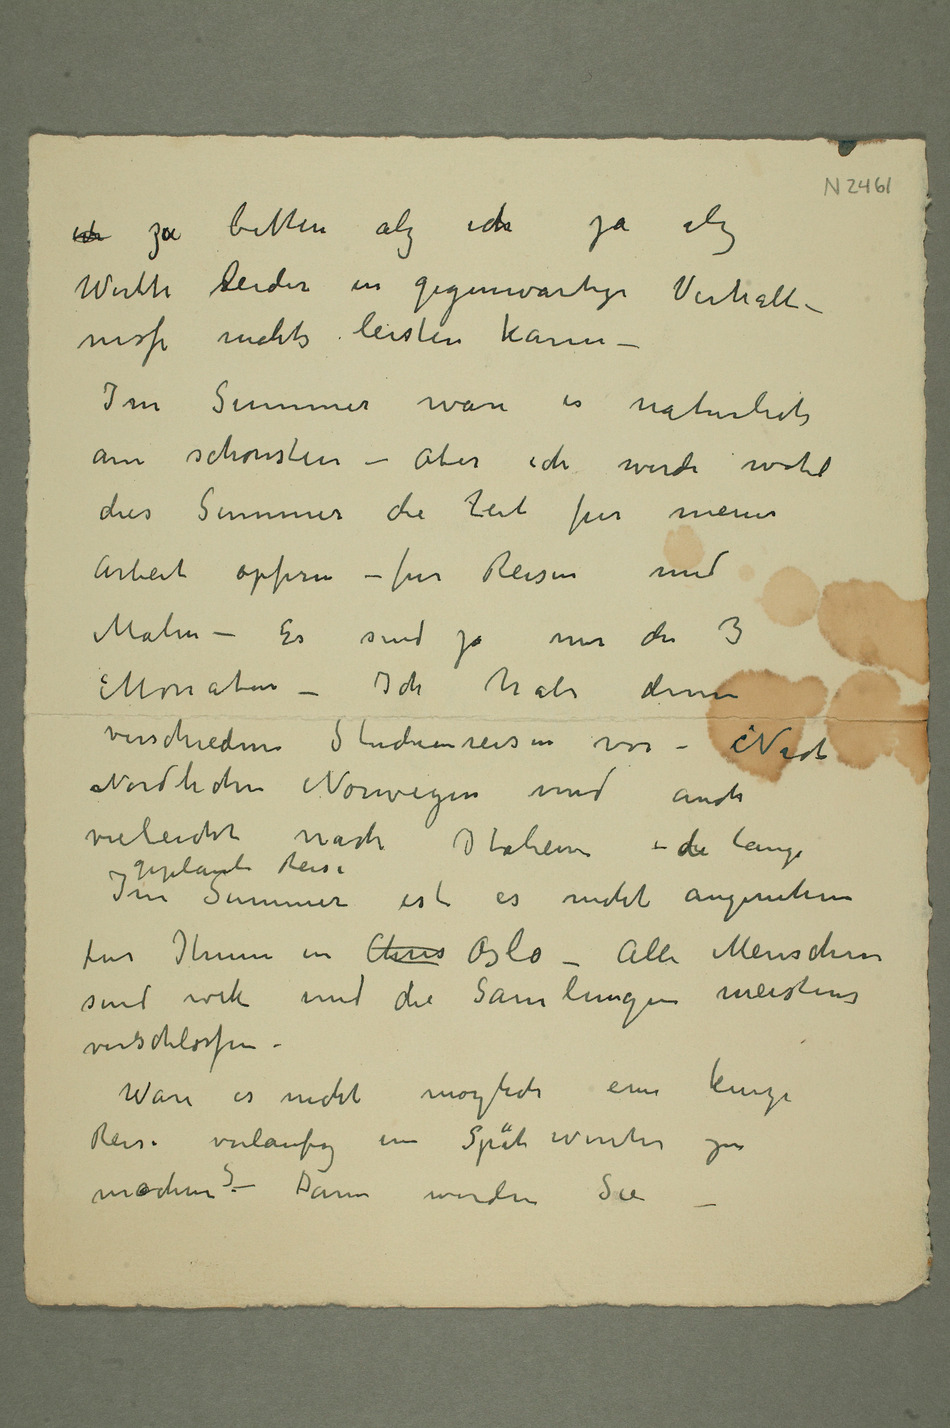 N 2461
ich zu bitten als ich ja als
Wirth leider in gegenwartige Verhalt–
nisse nichts leisten kann –
Im Sommer ware es naturlich
am schonsten – aber ich werde wohl
dies Sommer die Zeit fur meine
Arbeit opfern – fur Reisen und
Malen – Es sind ja nur die 3
Monaten – Ich habe denn
verschiedene Studienreisen vor – Nach
Nordlichen Norwegen und auch
vieleicht nach Italien – die lange
geplante Reise
Im Summer ist es nicht angenehm
fur Ihnen in Chris Oslo – Alle Menschen
sind wek und die Samlungen meistens
verschlossen –
Ware es nicht moglich eine kurze
Reise vorlaufig im Spät winter zu
machen? – Dann werden Sie –